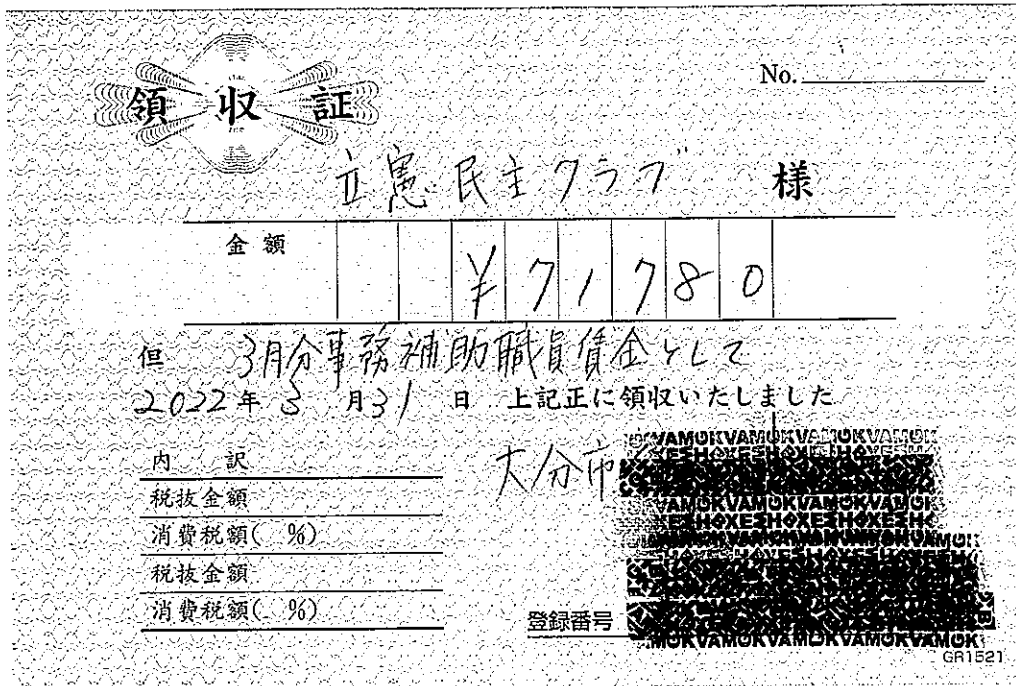 領収証
No.
立憲民主クラブ 様
金額 ¥71780
但 3月分事務補助職員賃金として
2022年3月31日 上記正に領収いたしました
大分市
内訳
税抜金額
消費税額( %)
税抜金額
消費税額( %)
登録番号
GR1521